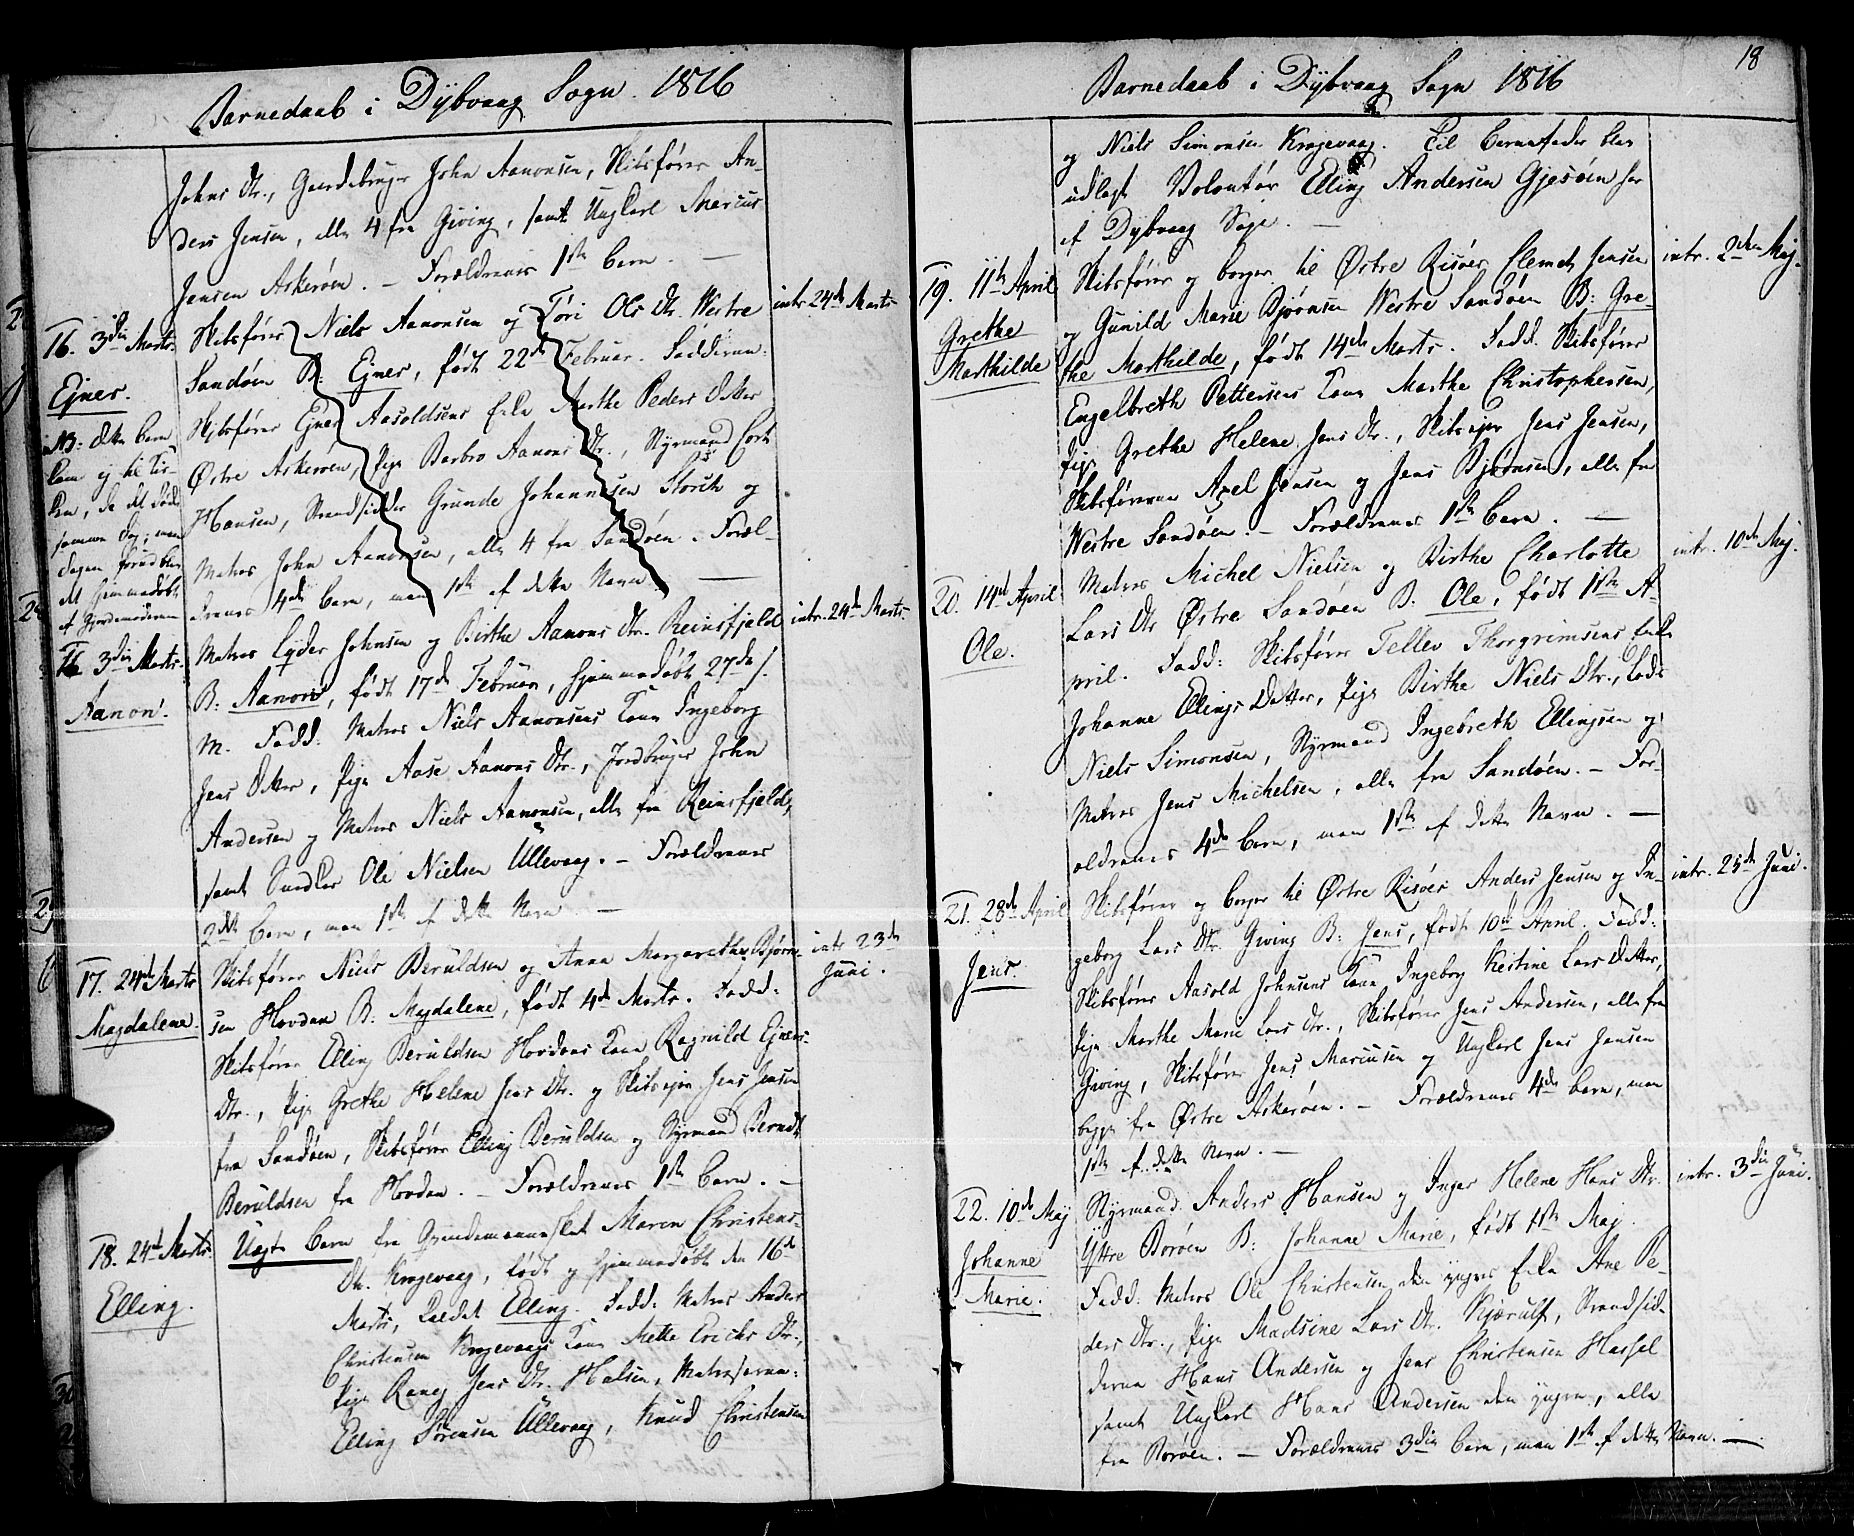 Barnedaab i Dÿbvaag Sogn. 1816
Johns Dtr., Gaardebruger John Aanonsen, Skibsfører An-
ders Jensen, alle 4 fra Giving, samt Ungkarl Marcus
Jensen Askerøen. – Forældrenes 1ste Barn. –
16. 3die Marts.
Ejner.
NB: dette Barn
kom ej til Kir-
ken, da det døde
samme Dag; men
Dagen forud blev
det hjemmedøbt
af Jordemoderen
Skibsfører Niels Aanonsen og Tøri Ols Dtr. Westre
Sandøen B: Ejner, født 22de Februar. Fadderne:
Skibsfører Ejner Aasoldsens Enke Marthe Peders Datter
Østre Askerøen, Pige Barbro Aanons Dtr., Styrmand Cort
Hansen, Strandsidder Grunde Johannesen Storch og
Matros John Aanonsen, alle 4 fra Sandøen. Foræl-
drenes 4de Barn, men 1ste af dette Navn. –
intr. 24de Marts
16 3die Marts.
Aanon.
Matros Lÿder Johnsen og Birthe Aanons Dtr. Reinsfjeld
B: Aanon, født 17de Februar, hjemmedøbt 27de s.
M. Fadd: Matros Niels Aanonsens Kone Ingeborg
Jens Datter, Pige Aase Aanons Dtr., Jordbruger John
Andersen og Matros Niels Aanonsen, alle fra Reinsfjeld,
samt Snedker Ole Nielsen Ullevaag. – Forældrenes
2det Barn, men 1ste af dette Navn –
intr. 24de Marts.
17. 24de Marts
Magdalene.
Skibsfører Niels Beruldsen og Anna Margarethe Bjørn-
sen Hovdan B: Magdalene, født 4de Marts. Fadd:
Skibsfører Elling Beruldsen Hovdans Kone Ragnild Ejners
Dtr., Pige Grethe Helene Jens Dtr. og Skibsejer Jens Jensen
fra Sandøen, Skibsfører Elling Beruldsen og Styrmand Berndt
Beruldsen fra Hovdan. – Forældrenes 1ste Barn. –
intr 23de
Juni.
18. 24de Marts.
Elling.
Uægte Barn fra Qvindemennesket Maren Christens-
Dtr. Krogevaag, født og hjemmedøbt den 16de
Marts, kaldet Elling. Fadd: Matros Anders
Christensen Krogevaags Kone Mette Erichs Dtr.,
Pige Raneg Jens Dtr. Halsen, Matroserne:
Elling Sørensen Ullevaag, Knud Christensen
18
Barnedaab i Dÿbvaag Sogn 1816
og Niels Simonsen Krogevaag. Til Barnefader blev
udlagt Volontør Elling Andersen Gjesøen her
af Dybvaag Sogn. –
19. 11te April
Grethe
Marthilde
Skibsfører og Borger til Østre Risøer Clemet Jensen
og Gunild Marie Bjørnsen Westre Sandøen B: Gre-
the Marthilde, født 14de Marts. Fadd. Skibsfører
Engelbreth Pettersens Kone Marthe Christophersen,
Pige Grethe Helene Jens Dtr., Skibsejer Jens Jensen,
Skibsførerne Axel Jensen og Jens Bjørnsen, alle fra
Westre Sandøen. – Forældrenes 1ste Barn. –
intr. 2den Maj.
20. 14de April
Ole.
Matros Michel Nielsen og Birthe Charlotte
Lars Dtr Østre Sandøen B: Ole, født 1ste A-
pril. Fadd: Skibsfører Tellev Thorgrimsens Enke
Johanne Ellings Datter, Pige Birthe Niels Dtr., Lods
Niels Simonsen, Styrmand Ingebreth Ellingsen og
Matros Jens Michelsen, alle fra Sandøen. – For-
ældrenes 4de Barn, men 1ste af dette Navn. –
intr. 10de Maj.
21. 28de April
Jens.
Skibsfører og Borger til Østre Risøer Anders Jensen og In-
geborg Lars Dtr. Giving B: Jens, født 10de April. Fadd:
Skibsfører Aasold Johnsens Kone Ingeborg Kestine Lars Datter,
Pige Marthe Marie Lars Dtr., Skibsfører Jens Andersen, alle fra
Giving, Skibsfører Jens Marcusen og Ungkarl Jens Jensen
begge fra Østre Askerøen. – Forældrenes 4de Barn, men
1ste af dette Navn. –
intr. 23de Juni.
22. 10de Maj
Johanne
Marie.
Styrmand Anders Hansen og Inger Helene Hans Dtr.
Yttre Borøen B: Johanne Marie, født 1ste Maj.
Fadd: Matros Ole Christensen den yngres Enke Ane Pe-
ders Dtr., Pige Madsine Lars Dtr. Kjærulf, Strandsid-
derne Hans Andersen og Jens Christensen Hassel
samt Ungkarl Hans Andersen den yngre, alle
fra Borøen. – Forældrenes 3die Barn, men 1ste af dette Navn. –
intr. 3die Juni.